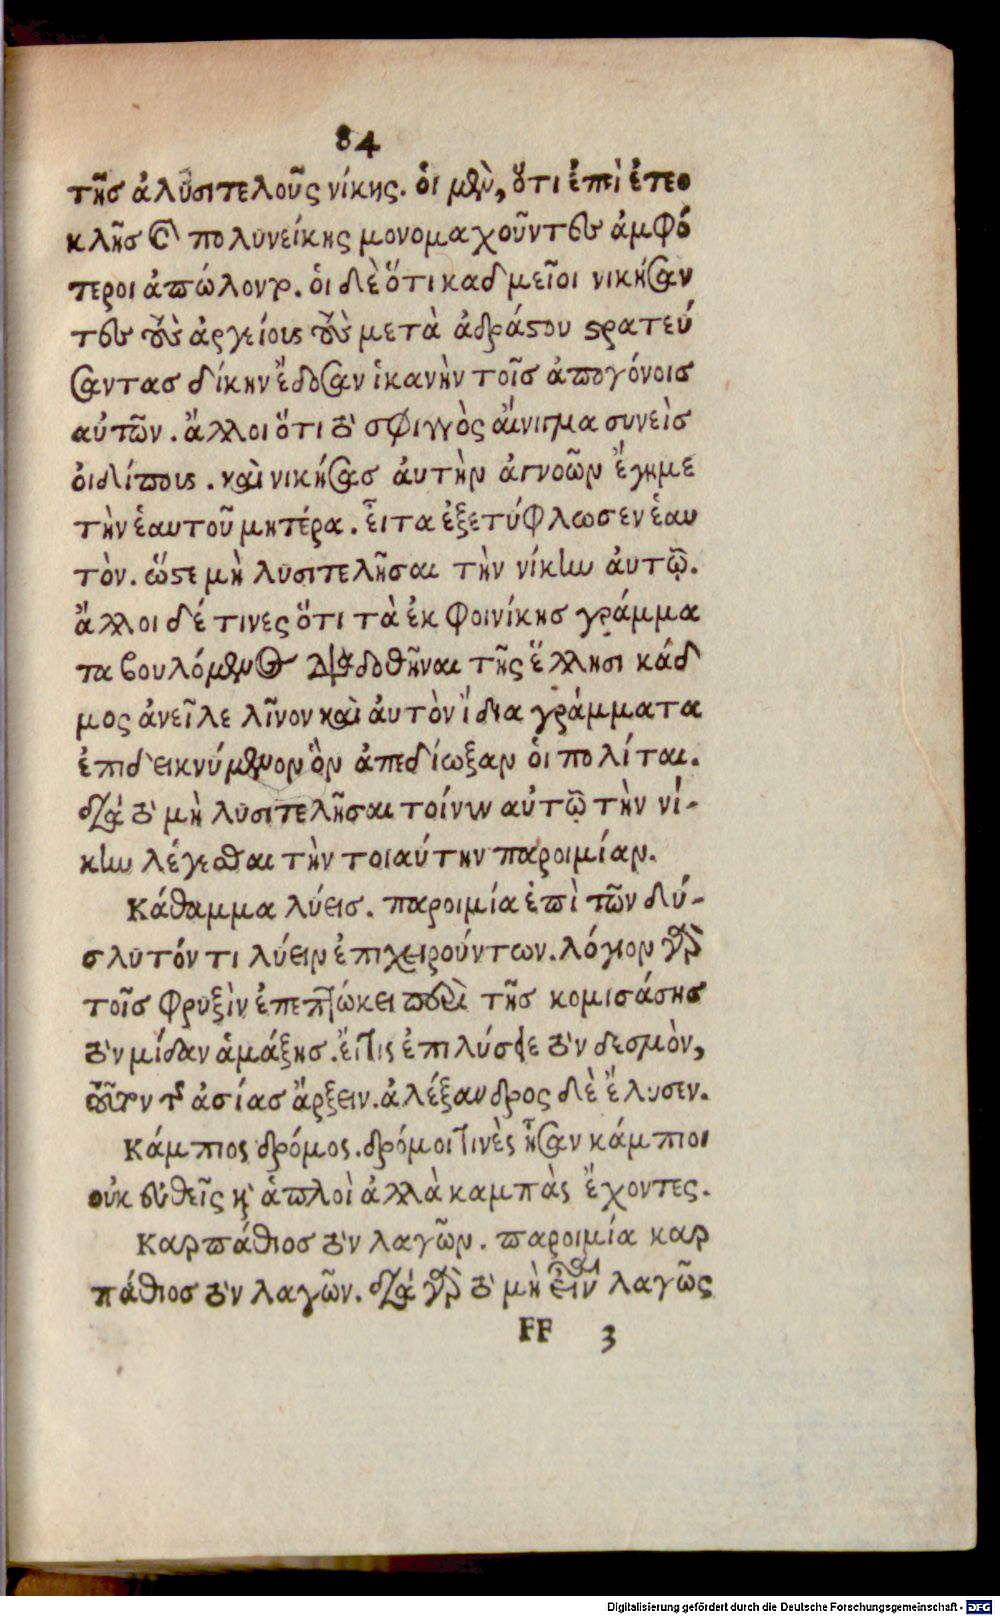 84
τῆς ἀλυσιτελοῦς νίκης. οἱ μὲν, ὅτι ἐπεὶ ἐτεο
κλῆς καὶ πολυνείκης μονομαχοῦντες ἀμφό
τεροι ἀπώλοντο. οἱ δὲ ὅτι καδμεῖοι νικήσαν
τες τοὺς ἀργείους τοὺς μετὰ ἀδράστου στρατεύ
σαντας δίκην ἔδοσαν ἱκανὴν τοῖς ἀπογόνοις
αὐτῶν. ἄλλοι ὅτι τὸ σφιγγὸς αἴνιγμα συνεὶς
οἰδίπους. καὶ νικήσας ἀυτὴν ἀγνοῶν ἔγημε
τὴν ἑαυτοῦ μητέρα. εἶτα ἐξετύφλωσεν ἑαυ
τὸν. ὥστε μὴ λυσιτελῆσαι τὴν νίκην ἀυτῷ.
ἄλλοι δέ τινες ὅτι τὰ ἐκ φοινίκης γράμμα
τα βουλόμενος διαδοθῆναι τῆς ἕλλησι κάδ
μος ἀνεῖλε λῖνον καὶ ἀυτὸν ἴδια γράμματα
ἐπιδεικνύμενον ὃν ἀπεδίωξαν οἱ πολίται.
διὰ τὸ μὴ λυσιτελῆσαι τοίνυν αὐτῷ τὴν νί-
κην λέγεσθαι τὴν τοιαύτην παροιμίαν.
Κάθαμμα λύεις. παροιμία ἐπὶ τῶν δύ-
σλυτόν τι λύειν ἐπιχειρούντων. λόγιον γὰρ
τοῖς φρυξὶν ἐπεπτώκει περὶ τῆς κομισάσης
τὸν μίδαν ἁμάξης. εἴ τις ἐπιλύσειε τὸν δεσμὸν,
τοῦτον τῆς ἀσίας ἄρξειν. ἀλέξανδρος δὲ ἔλυσεν.
Κάμπιος δρόμος. δρόμοι τινὲς ἦσαν κάμπιοι
οὐκ εὐθεῖς καὶ ἁπλοὶ ἀλλὰ καμπὰς ἔχοντες.
Καρπάθιος τὸν λαγῶν. παροιμία καρ
πάθιος τὸν λαγῶν. διὰ γὰρ τὸ μὴ εἶναι λαγῶς
FF 3
Digitalisierung gefördert durch die Deutsche Forschungsgemeinschaft - DFG